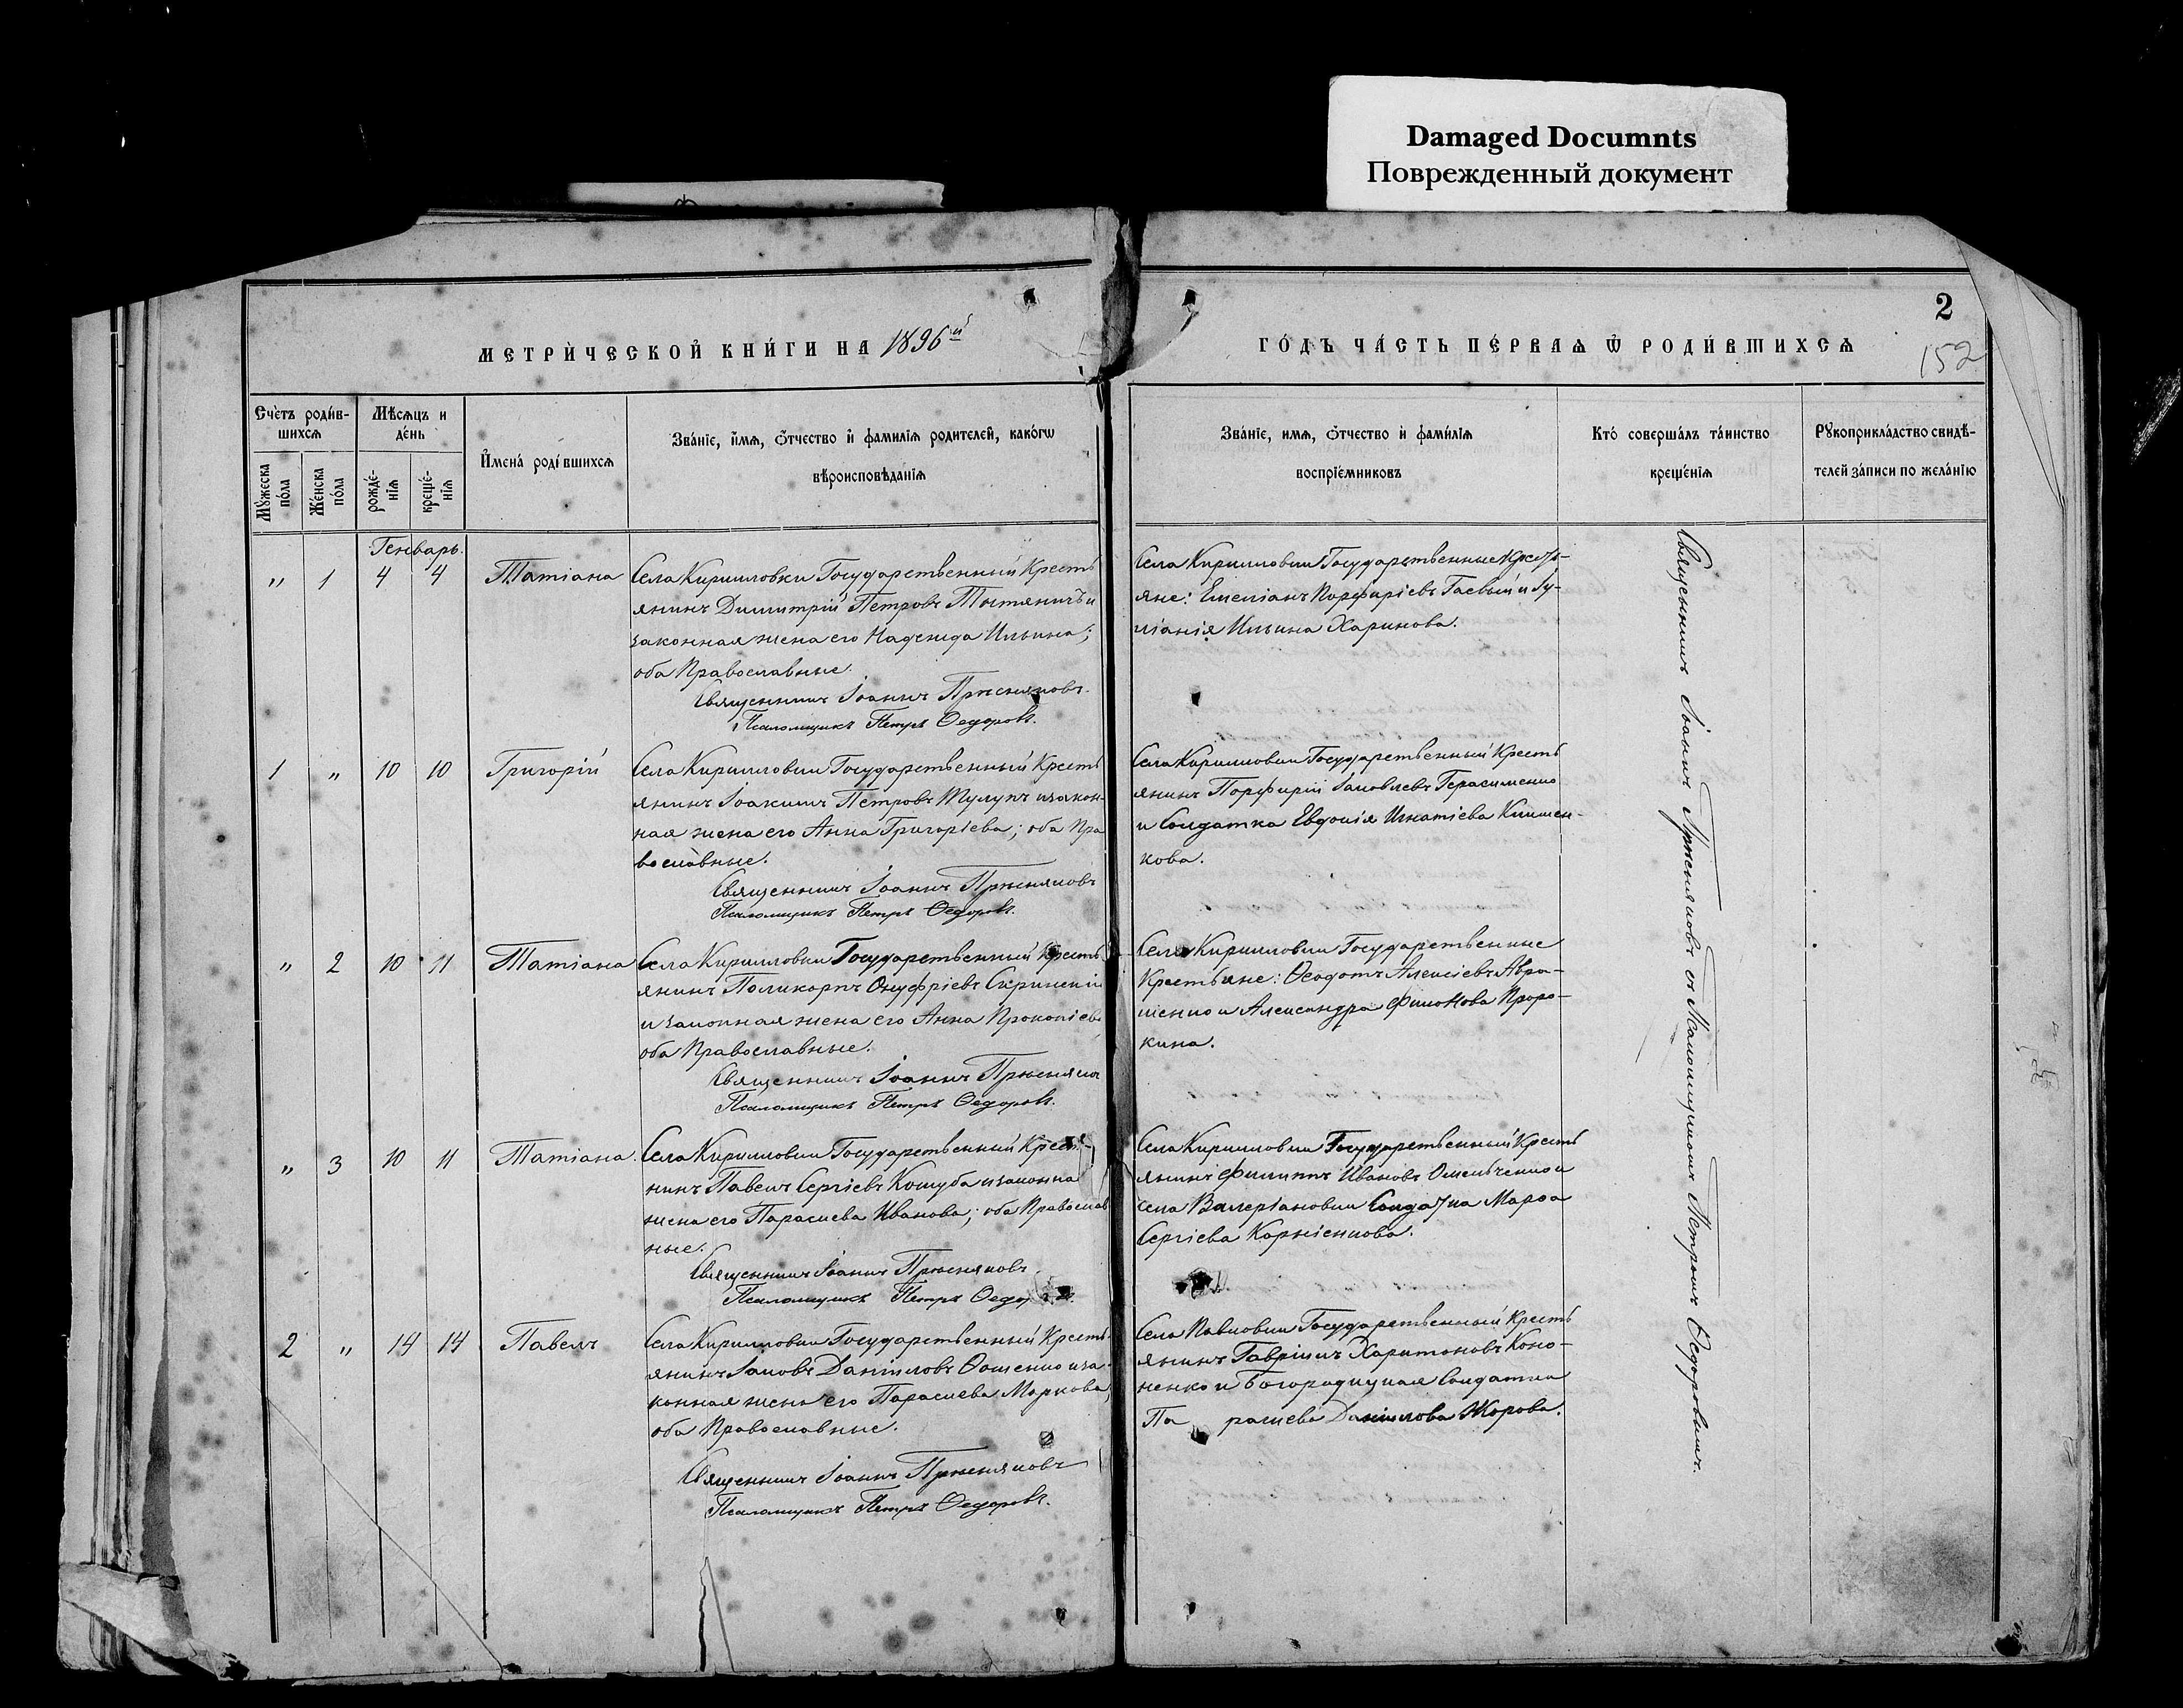 Damaged Documnts
Поврежденный документ
МЕТРИ́ЧЕСКОЙ КНИ́ГИ НА 1896й
ГО́ДЪ ЧА́СТЬ ПЕ́РВАѦ Ѽ РОДИ́ВШИХСѦ
2
152
Счетъ роди́в-
шихсѧ
Мѣсѧцъ и
де́нь
Мꙋжеска
по́ла
Же́нска
по́ла
рожде́-
нїѧ
креще́-
нїѧ
И҆мена̀ роди́вшихсѧ
Зва́нїе, и҆́мѧ, ѻ҆́тчество и҆ фами́лїѧ роди́телей, како́гѡ
вѣроисповѣ́данїѧ
Зва́нїе, имѧ, ѻ҆́тчество и҆ фами́лїѧ
воспрїе́мниковъ
Кто̀ соверша́лъ та́инство
креще́нїѧ
Рꙋкоприкла́дство свидѣ́-
телей за́писи по жела́нїю
Генварь.
" 1 4 4 Татіана
Села Кирилловки Государственный Кресть
янинъ Димитрій Петровъ и
законная жена его Надежда Ильина;
оба Православные.
Священникъ Іоаннъ Прѣсняковъ.
Псаломщикъ Петръ Ѳедоровъ.
Села Кирилловки Государственные Кресть-
яне: Емеліанъ Порфиріевъ Гаевый и Іу-
ліанія Ильина Харинова.
1 " 10 10 Григорій
Села Кирилловки Государственный Кресть
янинъ Іоакимъ Петровъ Тулупъ и закон-
ная жена его Анна Григоріева; оба Пра
вославные.
Священникъ Іоаннъ Прѣсняковъ
Псаломщикъ Петръ Ѳедоровъ.
Села Кирилловки Государственный Кресть
янинъ Порфирій Іаковлевъ Герасименко
и Солдатка Евдокія Игнатіева Климен-
кова.
" 2 10 11 Татіана
Села Кирилловки Государственный Кресть
янинъ Поликарпъ Онуфріевъ Скринскій
и законная жена его Анна Прокопіева
оба Православные.
Священникъ Іоаннъ Прѣсняков
Псаломщикъ Петръ Ѳедоровъ.
Села Кирилловки Государственные
Крестьяне: Ѳеодотъ Алексіевъ Авра-
менко и Александра Филонова Проро-
кина.
" 3 10 11 Татіана.
Села Кирилловки Государственный Крестья-
нинъ Павелъ Сергіевъ Кошуба и законна
жена его Параскева Иванова; оба Православ
ные.
Священникъ Іоаннъ Прѣсняковъ.
Псаломщикъ Петръ
Села Кирилловки Государственный Кресть
янинъ Филиппъ Ивановъ Омельченко и
села Валеріановки Солдатка Марѳа
Сергіева Корніенкова.
2 " 14 14 Павелъ
Села Кирилловки Государственный Кресть-
янинъ Іаковъ Даніиловъ Ѳоменко и за-
конная жена его Параскева Маркова,
оба Православные.
Священникъ Іоаннъ Прѣсняковъ
Псаломщикъ Петръ Ѳедоровъ.
Села Павловки Государственный Кресть
янинъ Гавріилъ Харитоновъ Коно-
ненко и Богородицкая Солдатка
Па раскева Даніилова Жорова.
Священникъ Іоаннъ Прѣсняковъ съ Псаломщикомъ Петромъ Ѳедоровымъ.